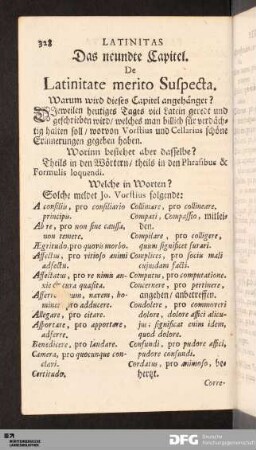 328 LATINITAS
Das neundte Capitel.
De
Latinitate merito Suspecta.
Warum wird dieses Capitel angehänget?
Bjeweilen heutiges Tages viel Latein geredt und
geschrieben wird / welches man billich für verdäch-
tig halten soll / wovon Vorstius und Cellarius schöne
Erinnerungen gegeben haben.
Worinn bestehet aber dasselbe?
Theils in den Wörtern / theils in den Phrasibus &
Formulis loquendi.
Welche in Worten?
Solche meldet Jo. Vorstius folgende:
A consiliis, pro consiliario
principis.
Ab re, pro non sine caussa,
non temere.
Ægritudo. pro quovis morbo.
Affectus, pro vitioso animi
adfectu.
Affectatus, pro re nimis an-
xie quæsita.
narem, ho-
pro adducere.
Allegare, pro citare.
Apportare, pro apportare,
adferre.
Benedicere, pro laudare.
Camera, pro quocunque con-
clavi.
Certitudo.
Collimare, pro collineare.
Compati, Compassio, mitlei-
den.
Compilare, pro colligere,
quum significet furari.
Complices, pro sociis mali
cujusdam facti.
Computus, pro computatione.
Concernere, pro pertinere,
angehen / anbetreffen.
Condolere, pro commoveri
dolore, dolore affici alicu-
jus; significat enim idem,
quod dolere.
Confundi, pro pudore affici,
pudore confundi.
Cordatus, pro animoso, be-
hertzt.
Corre-
WIENBIBLIOTHEK
DFG Deutsche
Forschungsgemeinschaft